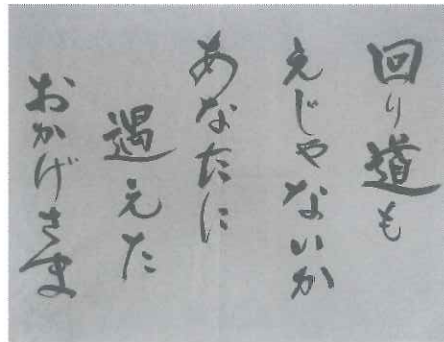 回り道も
えじゃないか
あなたに
遇えた
おかげさま